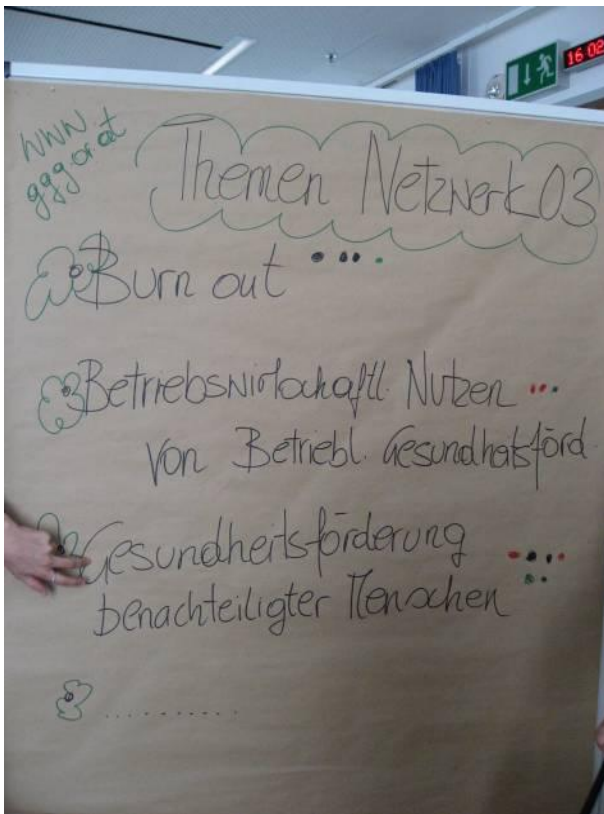 16 02
www
ggg.or.at
Themen Netzwerk 03
Burn out
Betriebswirtschaftl. Nutzen
von Betriebl. Gesundheitsförd.
Gesundheitsförderung
benachteiligter Menschen
..........